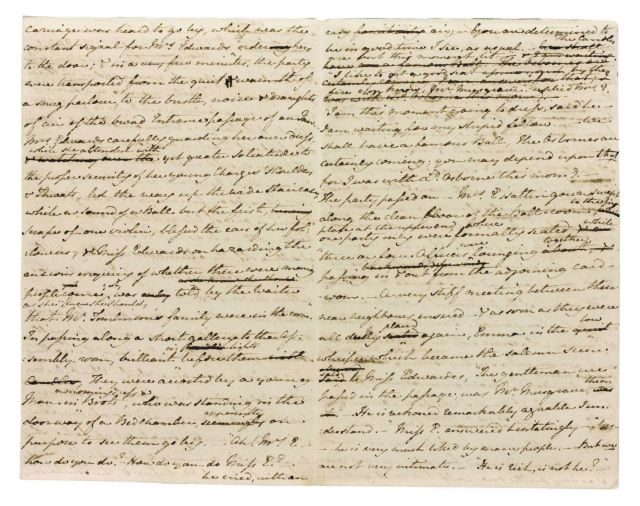 carriage was heard to go by, which was the
constant signal for Mrs. Edwards' ordering hers
to the door; & in a very few minutes, the party
were transported from the quiet warmth of
a snug parlour to the bustle, noise & draughts
of air of the broad Entrance passage of an Inn.
Mrs. Edwards carefully guarding her own dress,
while she attended with
yet greater Solicitude to
the proper security of her young Charges' Shoulders
& Throats, led the way up the wide Staircase,
while no sound of a Ball but the first
scrape of one violin, blessed the ears of her followers,
& Miss Edwards on hazarding the
anxious enquiry of whether there were many
people come yet was told by the Waiter
as she knew she should,
that Mr. Tomlinson's family were in the room.
In passing along a short gallery to the assembly
room, brilliant in lights before them
They were accosted by a young
Man in a morning dress &
Boots, who was standing in the
doorway of a Bedchamber, apparently on
purpose to see them go by.— "Ah! Mrs. E—
how do you do?— How do you do Miss E.?—
he cried, with an
easy air;— "You are determined to
be in good time I see, as usual.—
The Candles
are but this moment lit"
"I like to get a good seat by the
fire you know, Mr. Musgrave." replied Mrs. E.
"I am this moment going to dress, said he—
I am waiting for my stupid fellow.— We
shall have a famous Ball. The Osbornes are
certainly coming; you may depend upon that
for I was with Ld. Osborne this morng."
The party passed on— Mrs. E's sattin gown swept
along the clean floor of the Ball-room, to the fire
place at the upper end, where
one party only were formally seated, while
three or four Officers were lounging together,
passing in & out from the adjoining card
room.— A very stiff meeting between these
near neighbours ensued— & as soon as they were
all duely placed again, Emma in the low
whisper which became the solemn scene,
said to Miss Edwards, "The gentleman we
passed in the passage, was Mr. Musgrave, then?
— He is reckoned remarkably agreable I understand.—"
Miss E. answered hesitatingly— "Yes—
he is very much liked by many people.— But we
are not very intimate."— "He is rich, is not he?"